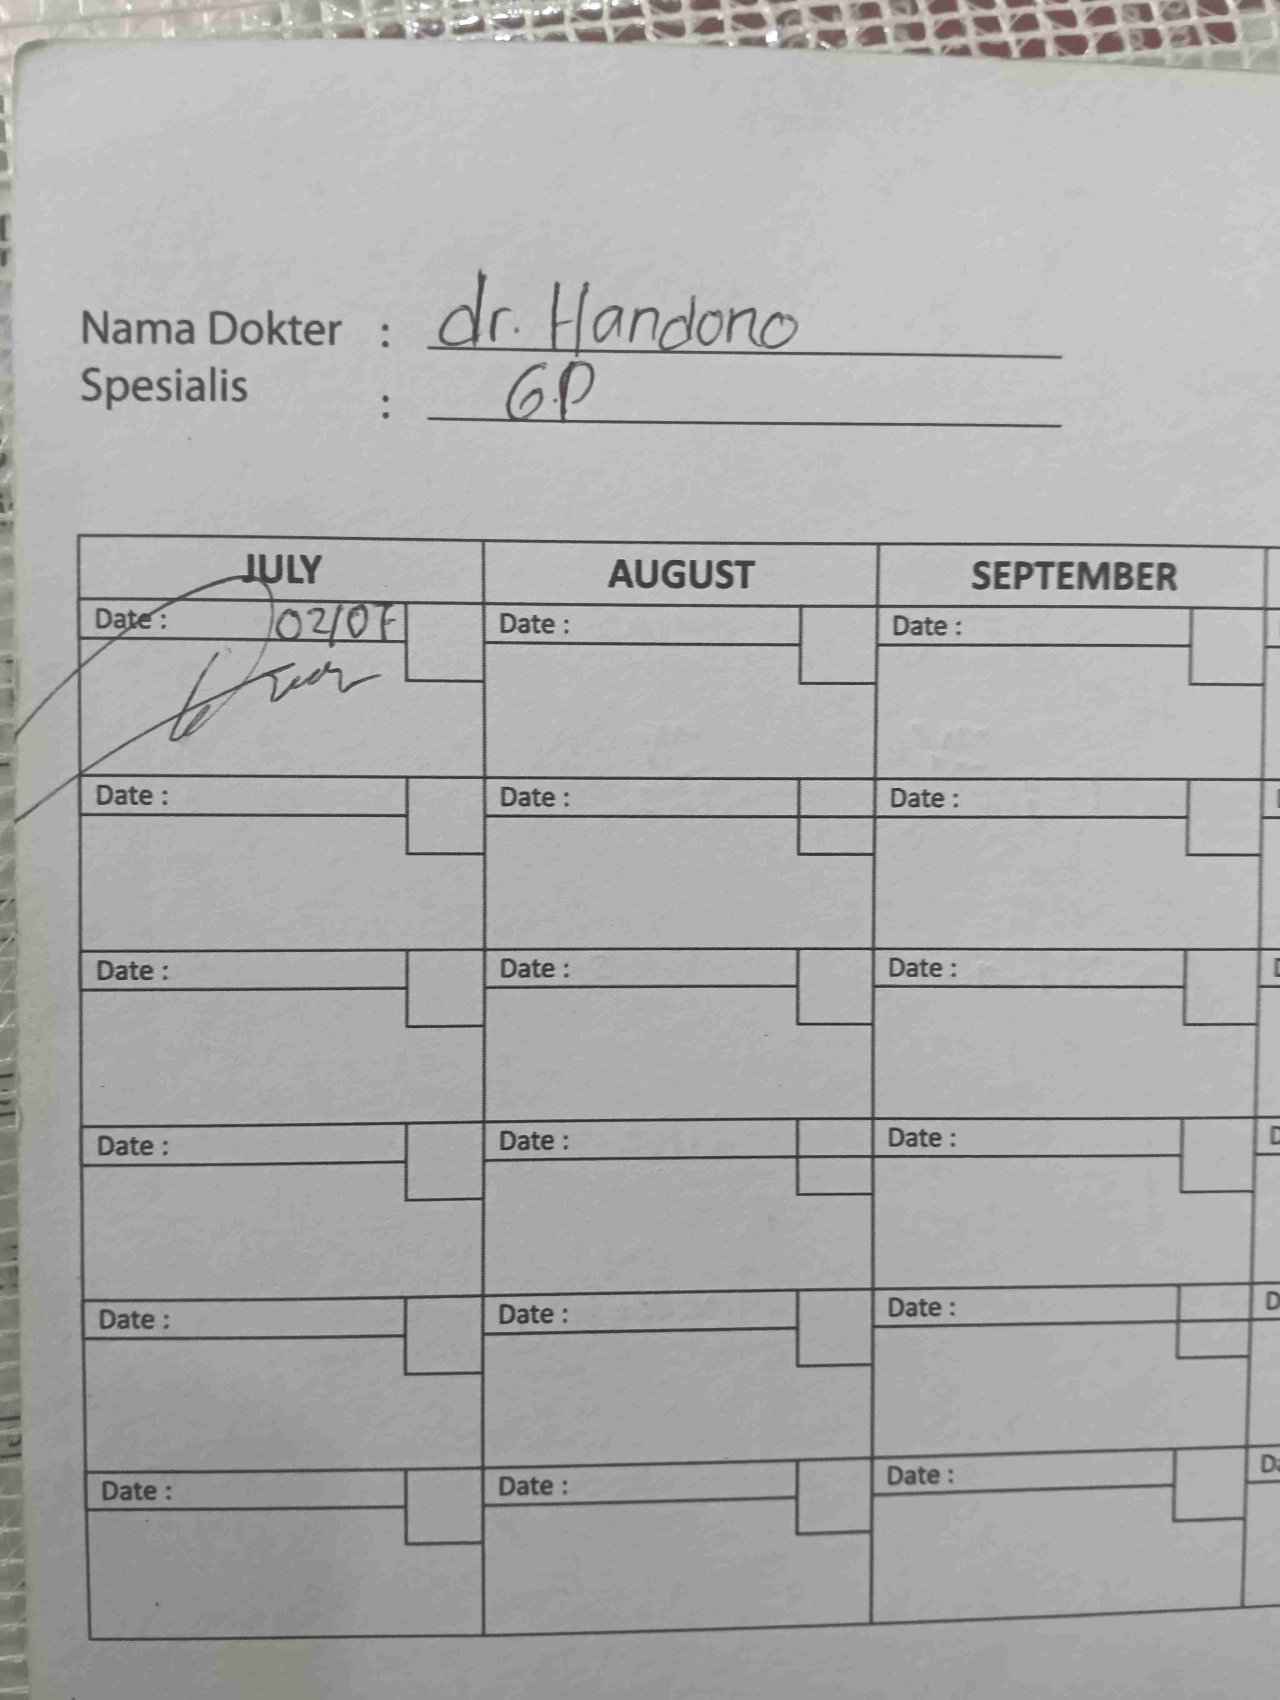 Nama Dokter : dr. Handono
Spesialis : G.P
JULY AUGUST SEPTEMBER
Date : 02/07 Date : Date :
Date : Date : Date :
Date : Date : Date :
Date : Date : Date :
Date : Date : Date :
Date : Date : Date :